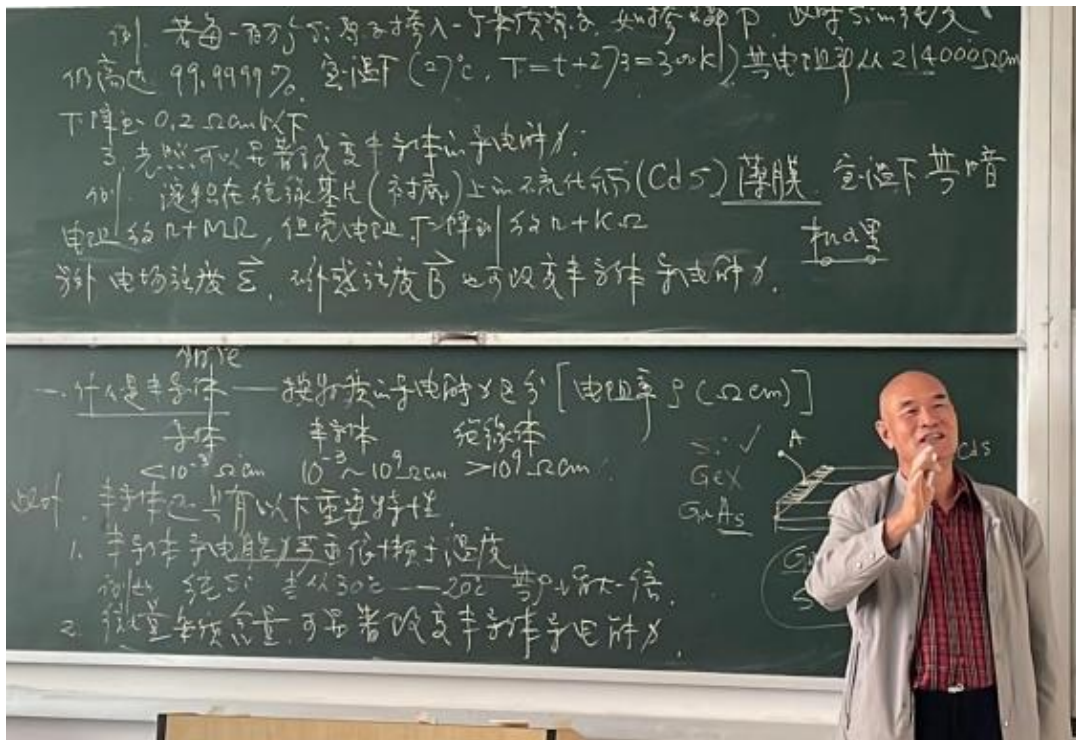 例. 若每一百万个Si原子掺入一个杂质原子, 如掺入部P, 此时Si的纯度
仍高达 99.9999%. 室温下 (27℃, T=t+273=300K) 其电阻率从 214000Ωcm
下降至 0.2 Ωcm以下
3. 光照可以显著改变半导体的导电能力:
例. 淀积在绝缘基片(衬底)上的硫化镉(CdS)薄膜 室温下其暗
电阻约 n+MΩ, 但亮电阻下降到约 n+KΩ
另外 电场强度 ℰ, 磁感强度 B 也可改变半导体导电能力.
一. 什么是半导体 — 按物质的导电能力区分 [电阻率 ρ (Ωcm)]
导体 半导体 绝缘体
<10⁻³ Ωcm 10⁻³~10⁹ Ωcm >10⁹ Ωcm
Si ✓
GeX
GaAs
A
CdS
此外. 半导体还具有以下重要特性
1. 半导体导电能力等重依赖于温度
例如 纯Si 当从30℃ — 20℃ 其ρ增大一倍.
2. 微量杂质含量可显著改变半导体导电能力.